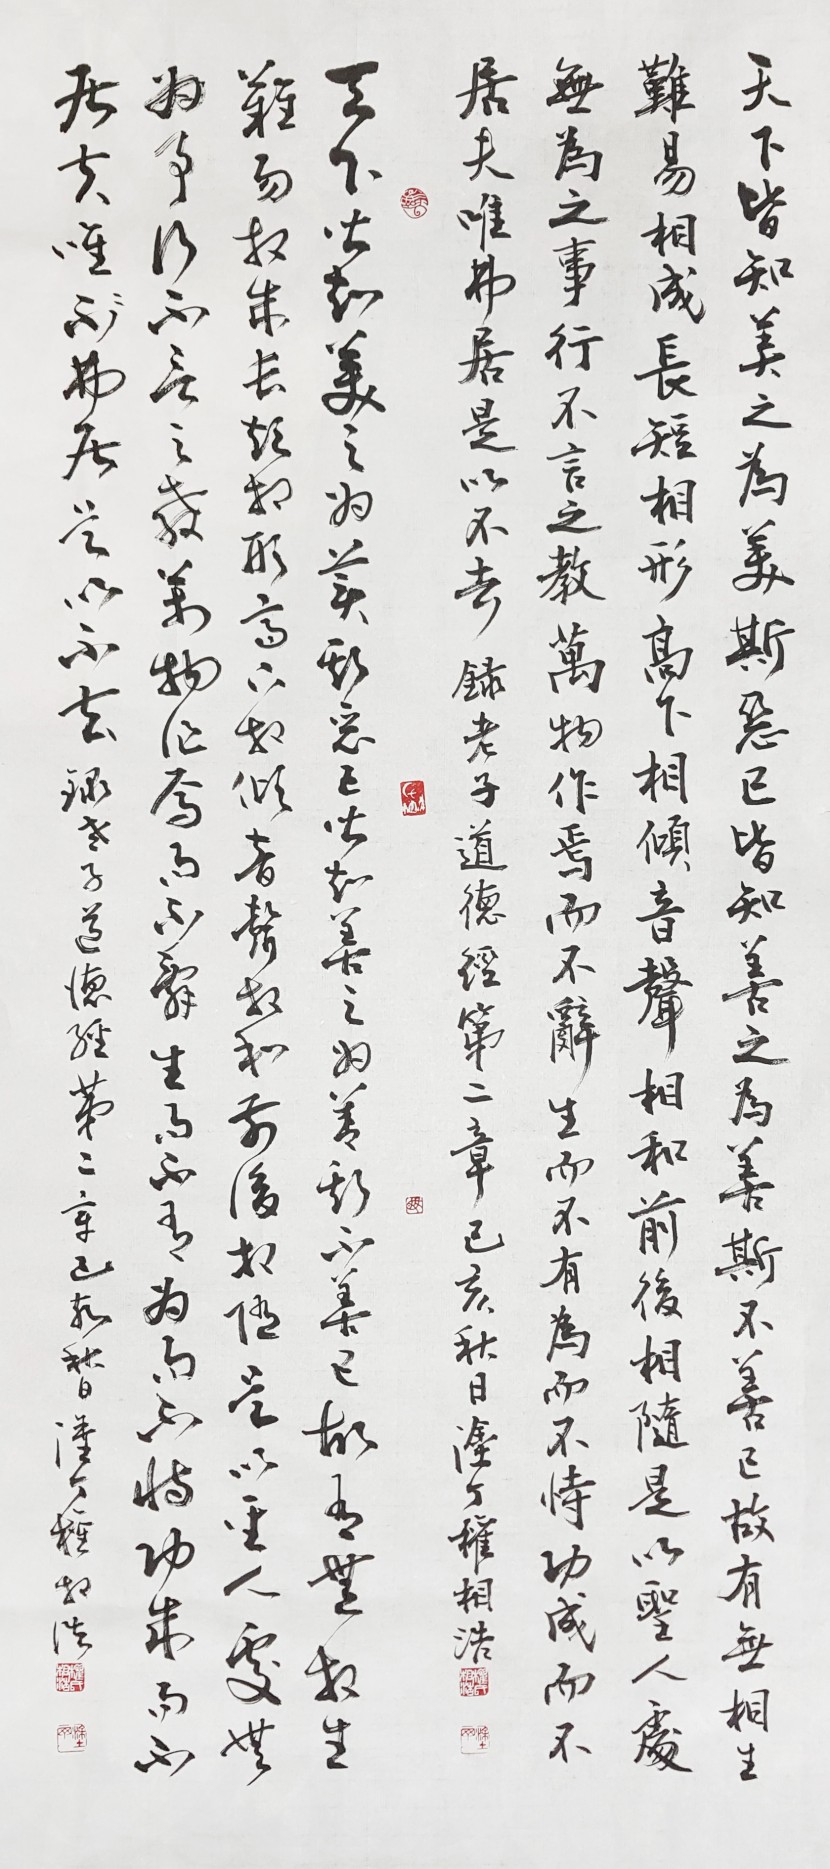 天下皆知美之為美斯惡已皆知善之為善斯不善已故有無相生
難易相成長短相形高下相傾音聲相和前後相隨是以聖人處
無為之事行不言之教萬物作焉而不辭生而不有為而不恃功成而不
居夫唯弗居是以不去 錄老子道德經第二章己亥秋日塗丁權相浩
天下皆知美之為美斯惡已皆知善之為善斯不善已故有無相生
難易相成長短相形高下相傾音聲相和前後相隨是以聖人處無
為事行不言之教萬物作焉而不辭生而不有為而不恃功成而不
居夫唯不弗居是以不去 錄老子道德經第二章己亥秋日塗丁權相浩